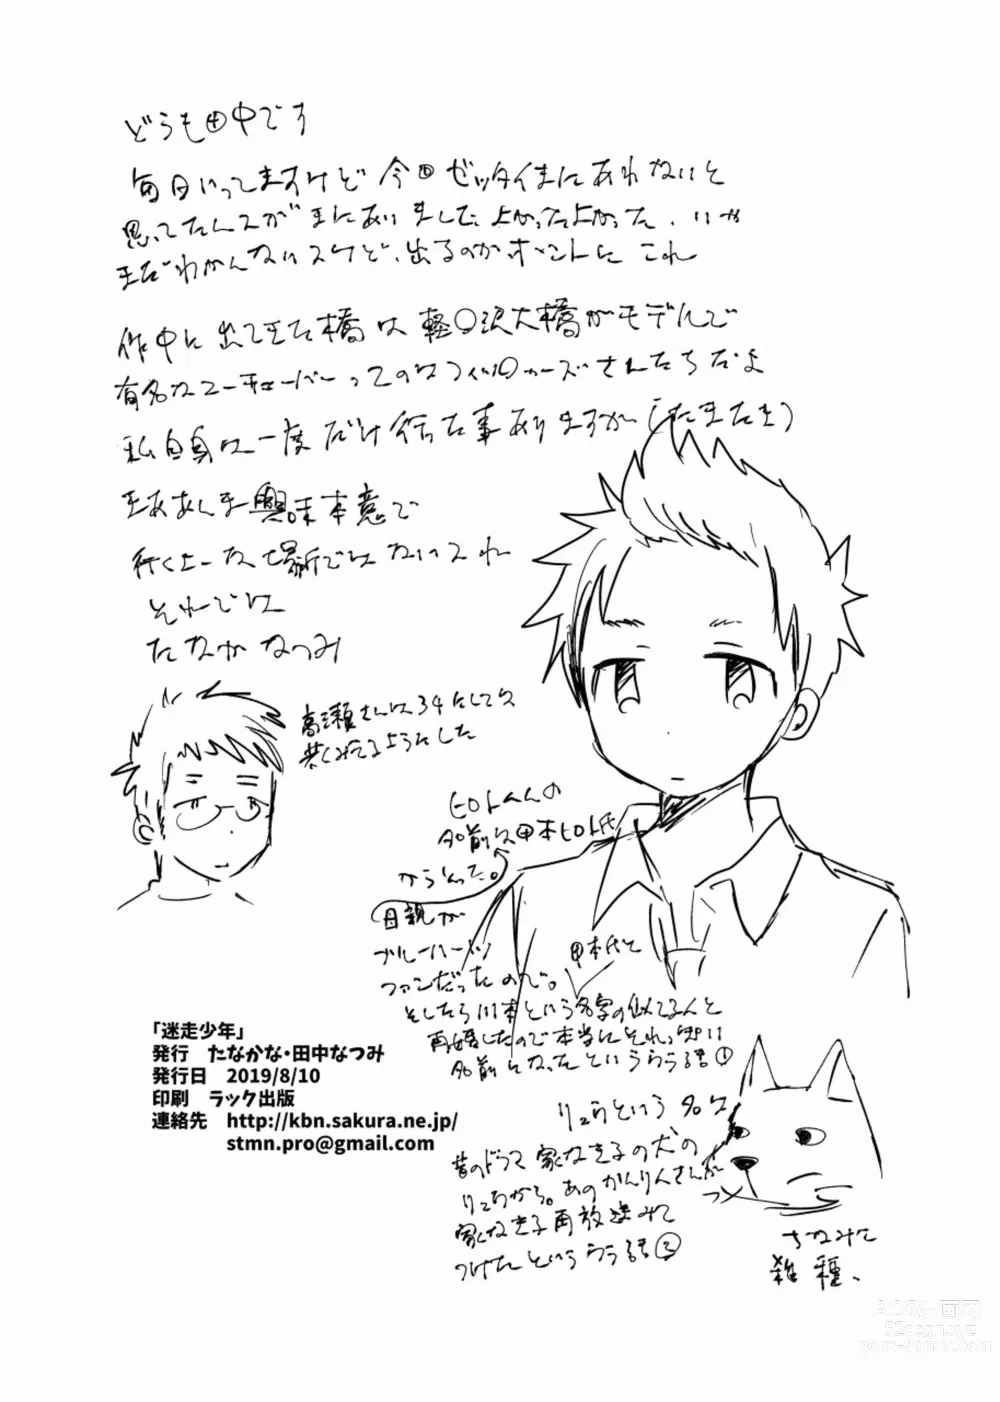 どうも田中です
毎日いってますけど 今回ゼッタイまにあわないと
思ってたんスがまにありました、よかったよかった、いや
まだわかんないスけど、出るのかホントに これ
作中に出てきた橋は 軽〇沢大橋がモデルで
有名なユーチューバーってのはフィッ〇ャーズさんたちだよ
私自身は一度だけ行った事ありますが(たまたま)
まああんま興味本意で
行くよーな場所ではないスね
それでは
たなか なつみ
高瀬さんは34にしては
老けてるようにした
ヒロトくんの
名前は甲本ヒロト氏
からとった。
母親が
ブルーハーツ
ファンだったので。
甲本氏と
そしたら川本という名字の似てる人と
再婚したので本当にそれっぽい
名前になったというらら話①
「迷走少年」
発行 たなかな・田中なつみ
発行日 2019/8/10
印刷 ラック出版
連絡先 http://kbn.sakura.ne.jp/
stmn.pro@gmail.com
リュウという名は
昔のドラマ 家なき子の犬の
リュウから。あのかんりんさんが
家なき子再放送みて
つけたというらら話②
ちなみに
雑種、